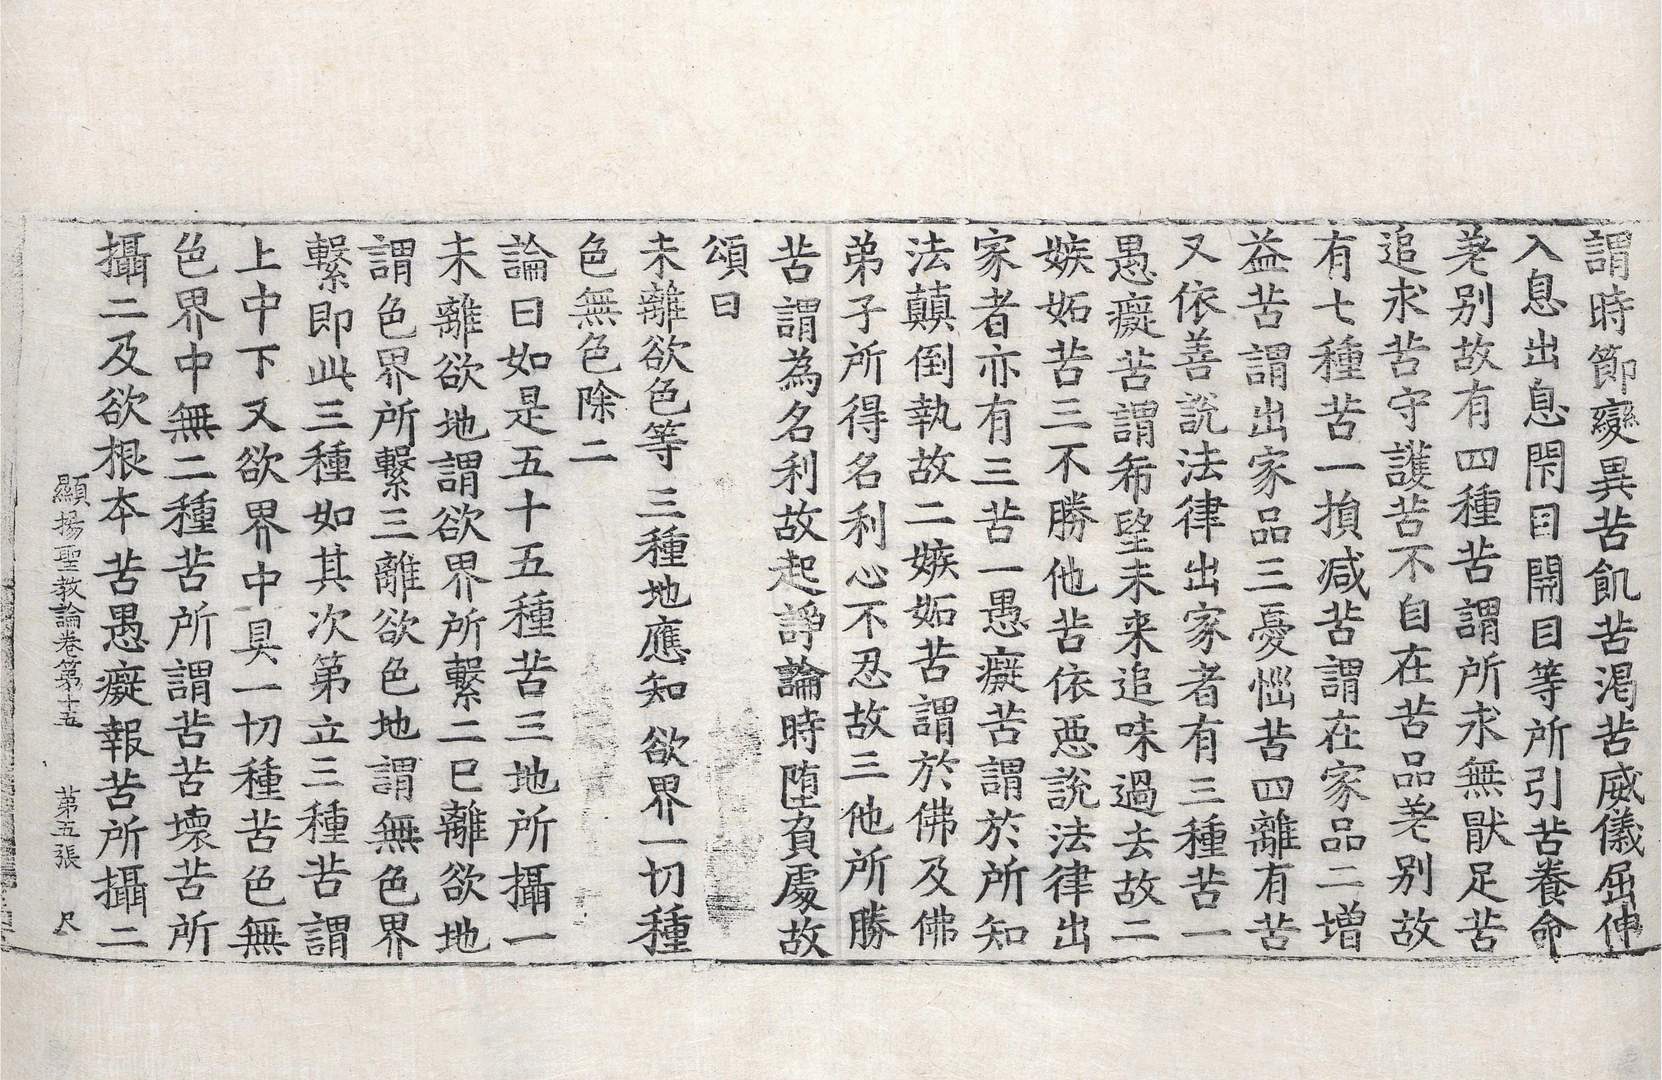 謂時節變異苦飢苦渴苦威儀屈伸
入息出息閇目開目等所引苦養命
差别故有四種苦謂所求無猒足苦
追求苦守護苦不自在苦品差别故
有七種苦一損减苦謂在家品二增
益苦謂出家品三憂惱苦四離有苦
又依善說法律出家者有三種苦一
愚癡苦謂希望未来追味過去故二
嫉妬苦三不勝他苦依惡說法律出
家者亦有三苦一愚癡苦謂於所知
法顛倒執故二嫉妬苦謂於佛及佛
弟子所得名利心不忍故三他所勝
苦謂為名利故起諍論時墮負處故
頌曰
未離欲色等 三種地應知 欲界一切種
色無色除二
論曰如是五十五種苦三地所攝一
未離欲地謂欲界所繫二已離欲地
謂色界所繫三離欲色地謂無色界
繫即此三種如其次第立三種苦謂
上中下又欲界中具一切種苦色無
色界中無二種苦所謂苦苦壞苦所
攝二及欲根本苦愚癡報苦所攝二
顯揚聖教論卷第十五 苐五張 尺